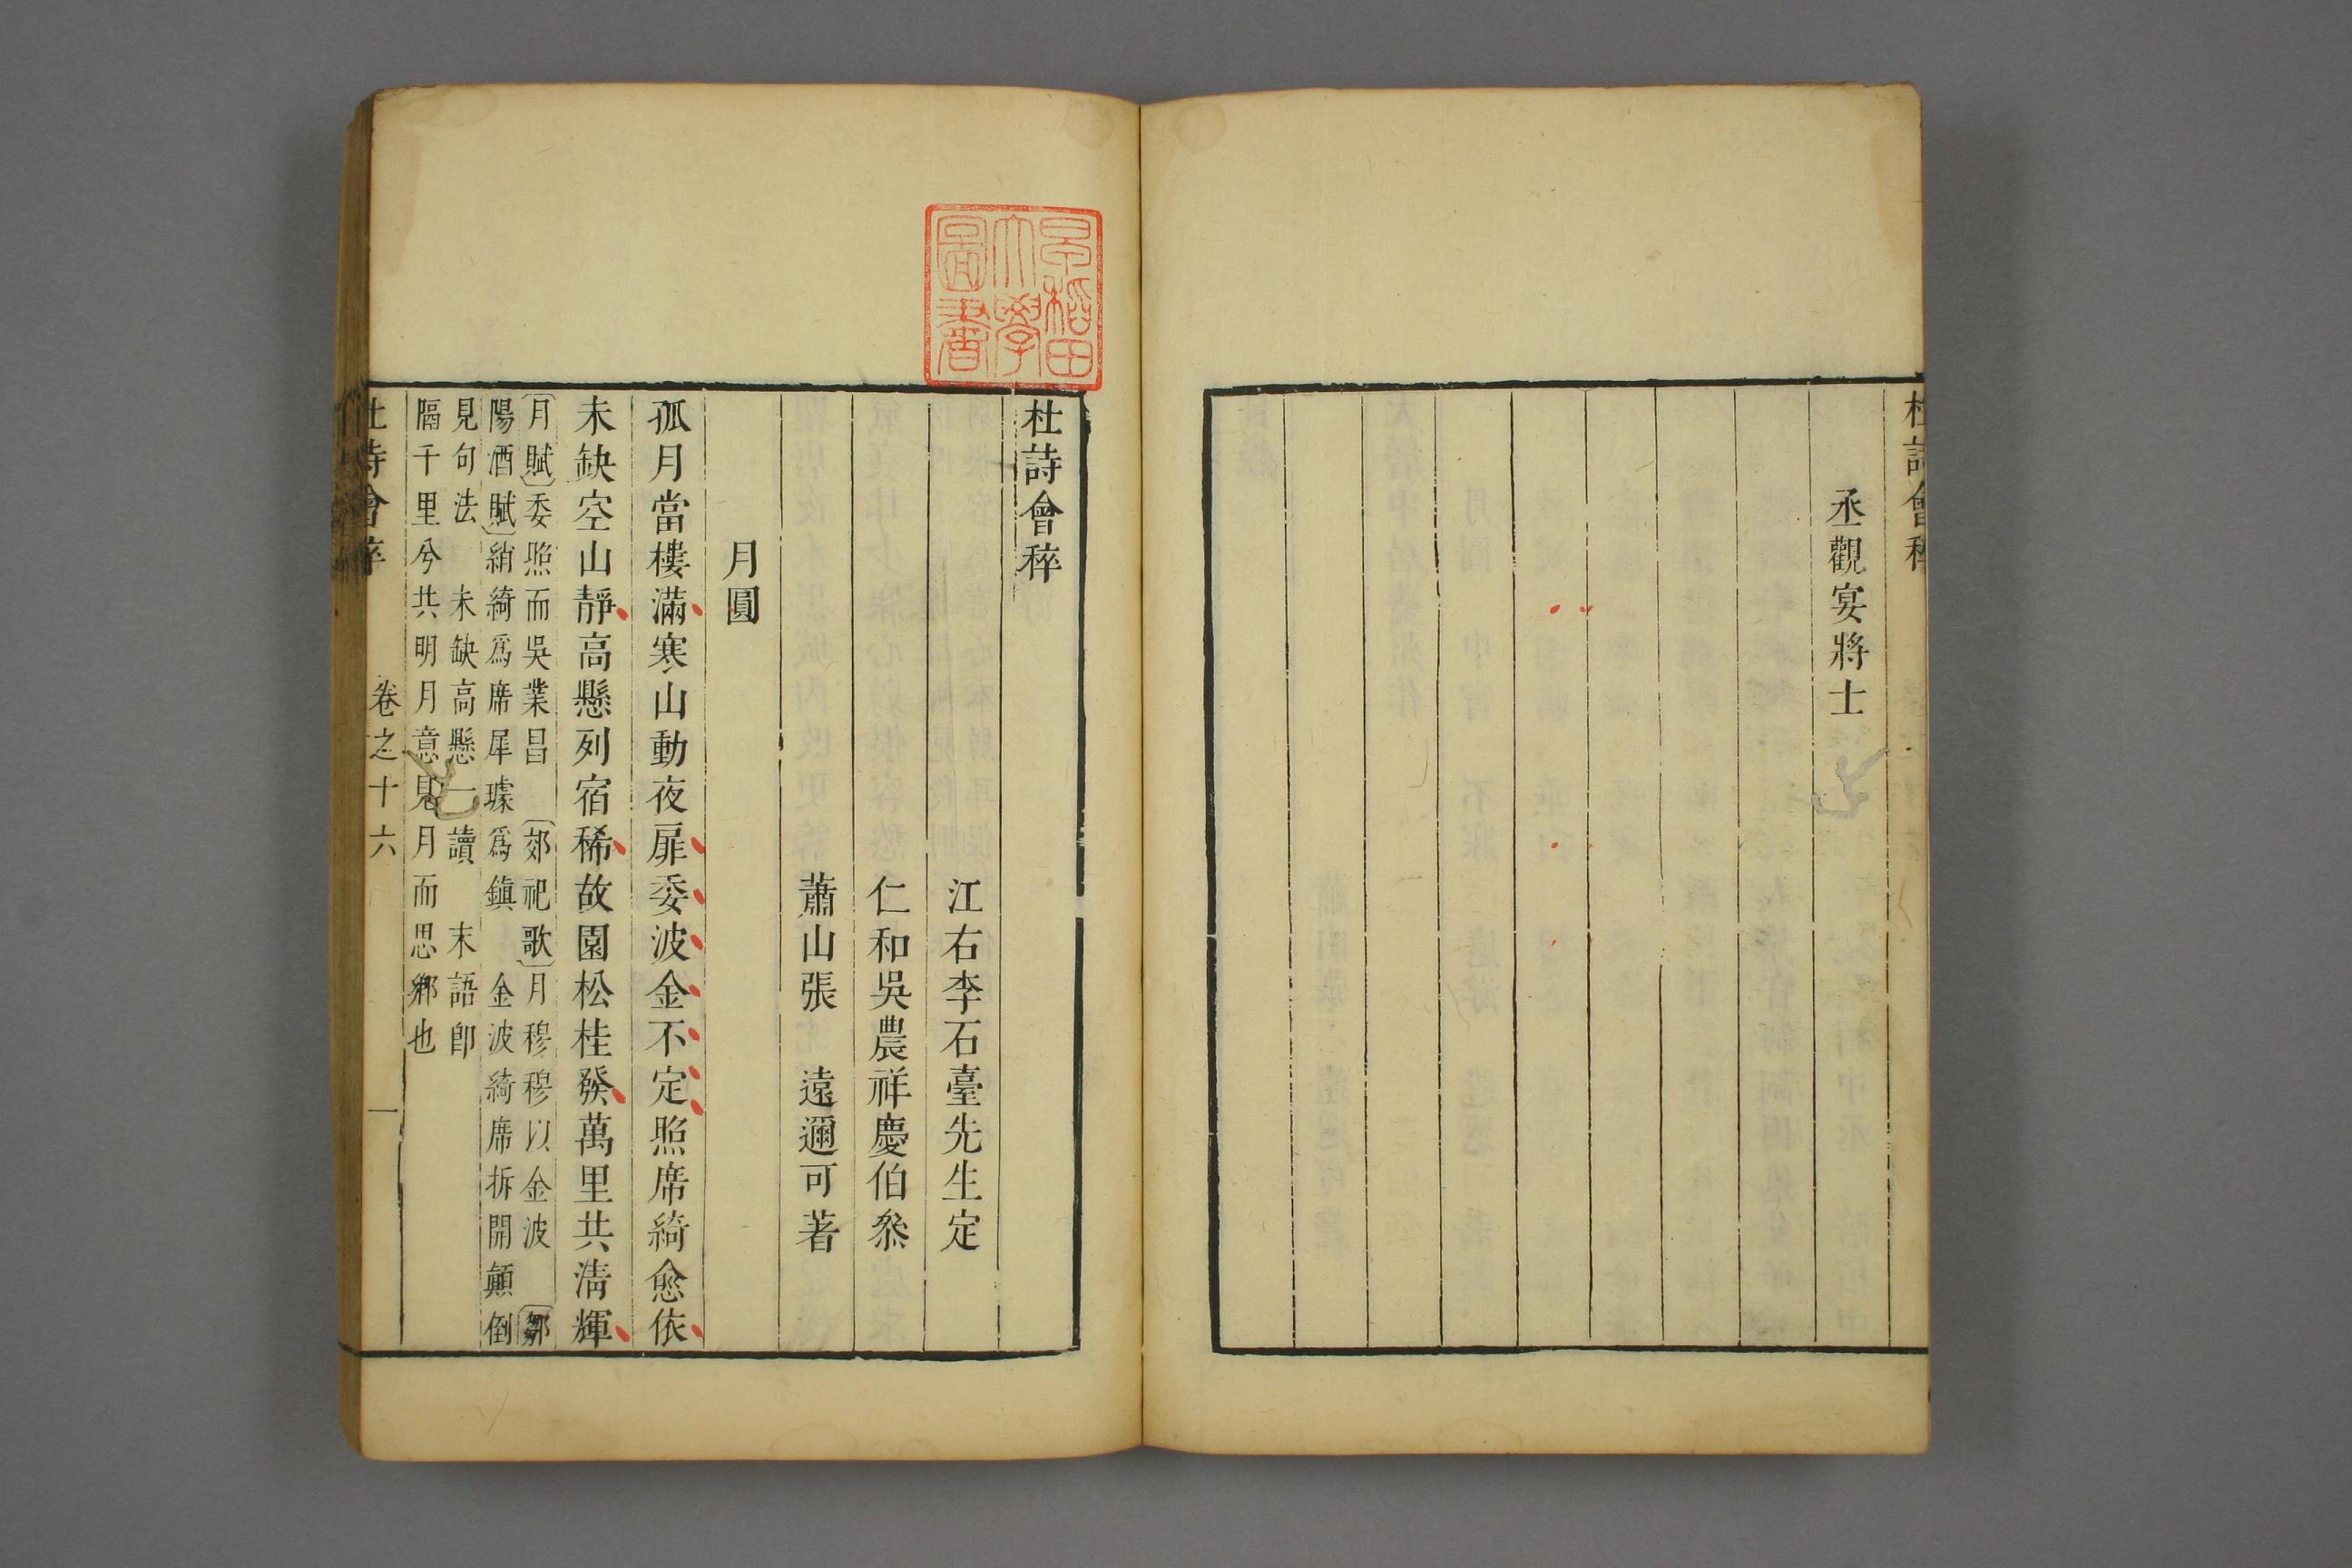 杜詩會稡
丞觀宴將士
早稻田大學圖書
杜詩會稡
江右李石臺先生定
仁和吳農祥慶伯叅
蕭山張　遠邇可著
月圓
孤月當樓滿寒山動夜扉委波金不定照席綺愈依
未缺空山靜高懸列宿稀故園松桂發萬里共清輝
〔月賦〕委照而吳業昌　〔郊祀歌〕月穆穆以金波　〔鄒
陽酒賦〕綃綺爲席犀璩爲鎮　金波綺席拆開顛倒
見句法　未缺高懸一讀　末語卽
隔千里兮共明月意見月而思鄉也
杜詩會稡　卷之十六　一